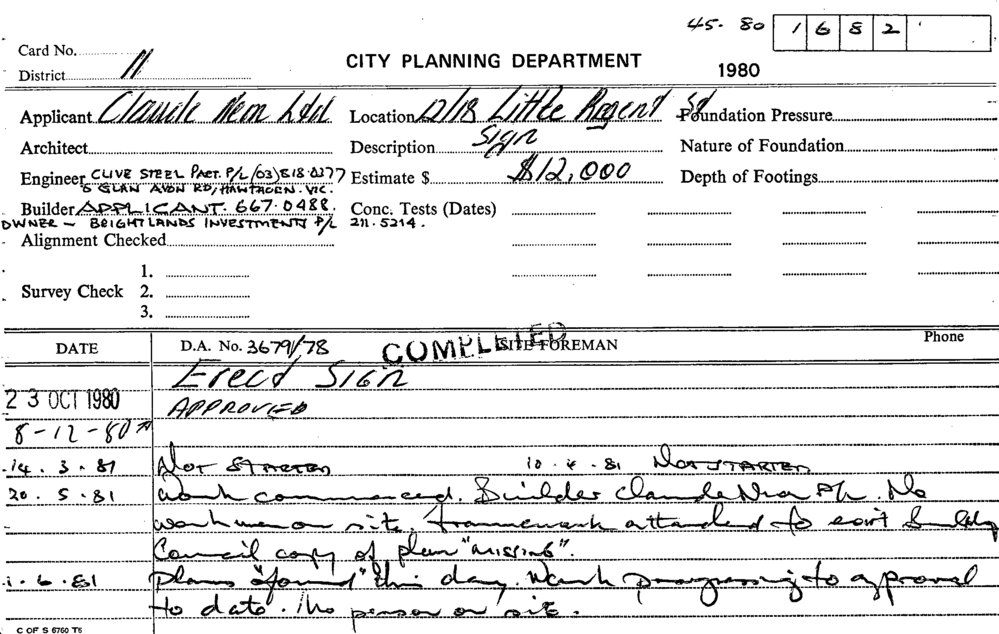 45. 80 1682
Card No.
District 11
CITY PLANNING DEPARTMENT
1980
Applicant Claude Neon Ltd Location 12/18 Little Regent St Foundation Pressure
Architect Description Sign Nature of Foundation
Engineer CLIVE STEEL PART. P/L (03) 818.0277 Estimate $ $12,000 Depth of Footings
5 GLAN AVON RD, HAWTHORN. VIC.
Builder APPLICANT. 667.0488. Conc. Tests (Dates)
OWNER – BRIGHTLANDS INVESTMENTS P/L 211.5214.
Alignment Checked
1.
Survey Check 2.
3.
DATE D.A. No. 3679/78 COMPLETED SITE FOREMAN Phone
Erect Sign
23 OCT 1980 APPROVED
8-12-80
14. 3. 81 Not STARTED 10. 4. 81 Not STARTED
20. 5. 81 Work commenced. Builder Claude Neon P/L. No
workmen on site. Framework attached to exist Building
Council copy of plan "missing".
1. 6. 81 Plans "found" this day. Work progressing to approval
to date. No person on site.
C OF S 6760 T6